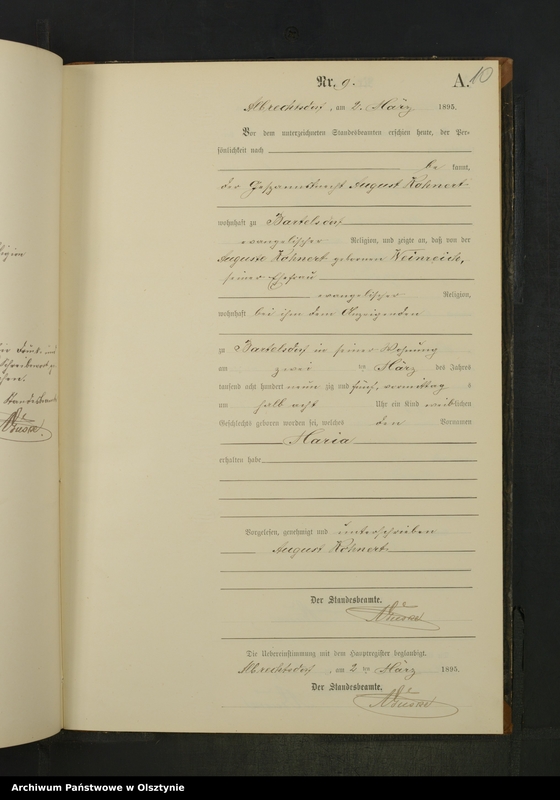 Nr. 9.
A. 10
Albrechtsdorf, am 2. März 1895.
Vor dem unterzeichneten Standesbeamten erschien heute, der Per-
sönlichkeit nach
be kannt,
der August Kohnert
wohnhaft zu Bartelsdorf
evangelischer Religion, und zeigte an, daß von der
Auguste Kohnert geborenen Weinreich,
seiner Ehefrau
evangelischer Religion,
wohnhaft bei ihm dem Anzeigenden
zu Bartelsdorf in seiner Wohnung
am zwei ten März des Jahres
tausend acht hundert neun zig und fünf, vormittag s
um halb acht Uhr ein Kind weiblichen
Geschlechts geboren worden sei, welches den Vornamen
Maria
erhalten habe
Vorgelesen, genehmigt und unterschrieben
August Kohnert
Der Standesbeamte.
Die Uebereinstimmung mit dem Hauptregister beglaubigt.
Albrechtsdorf, am 2 ten März 1895.
Der Standesbeamte.
Archiwum Państwowe w Olsztynie